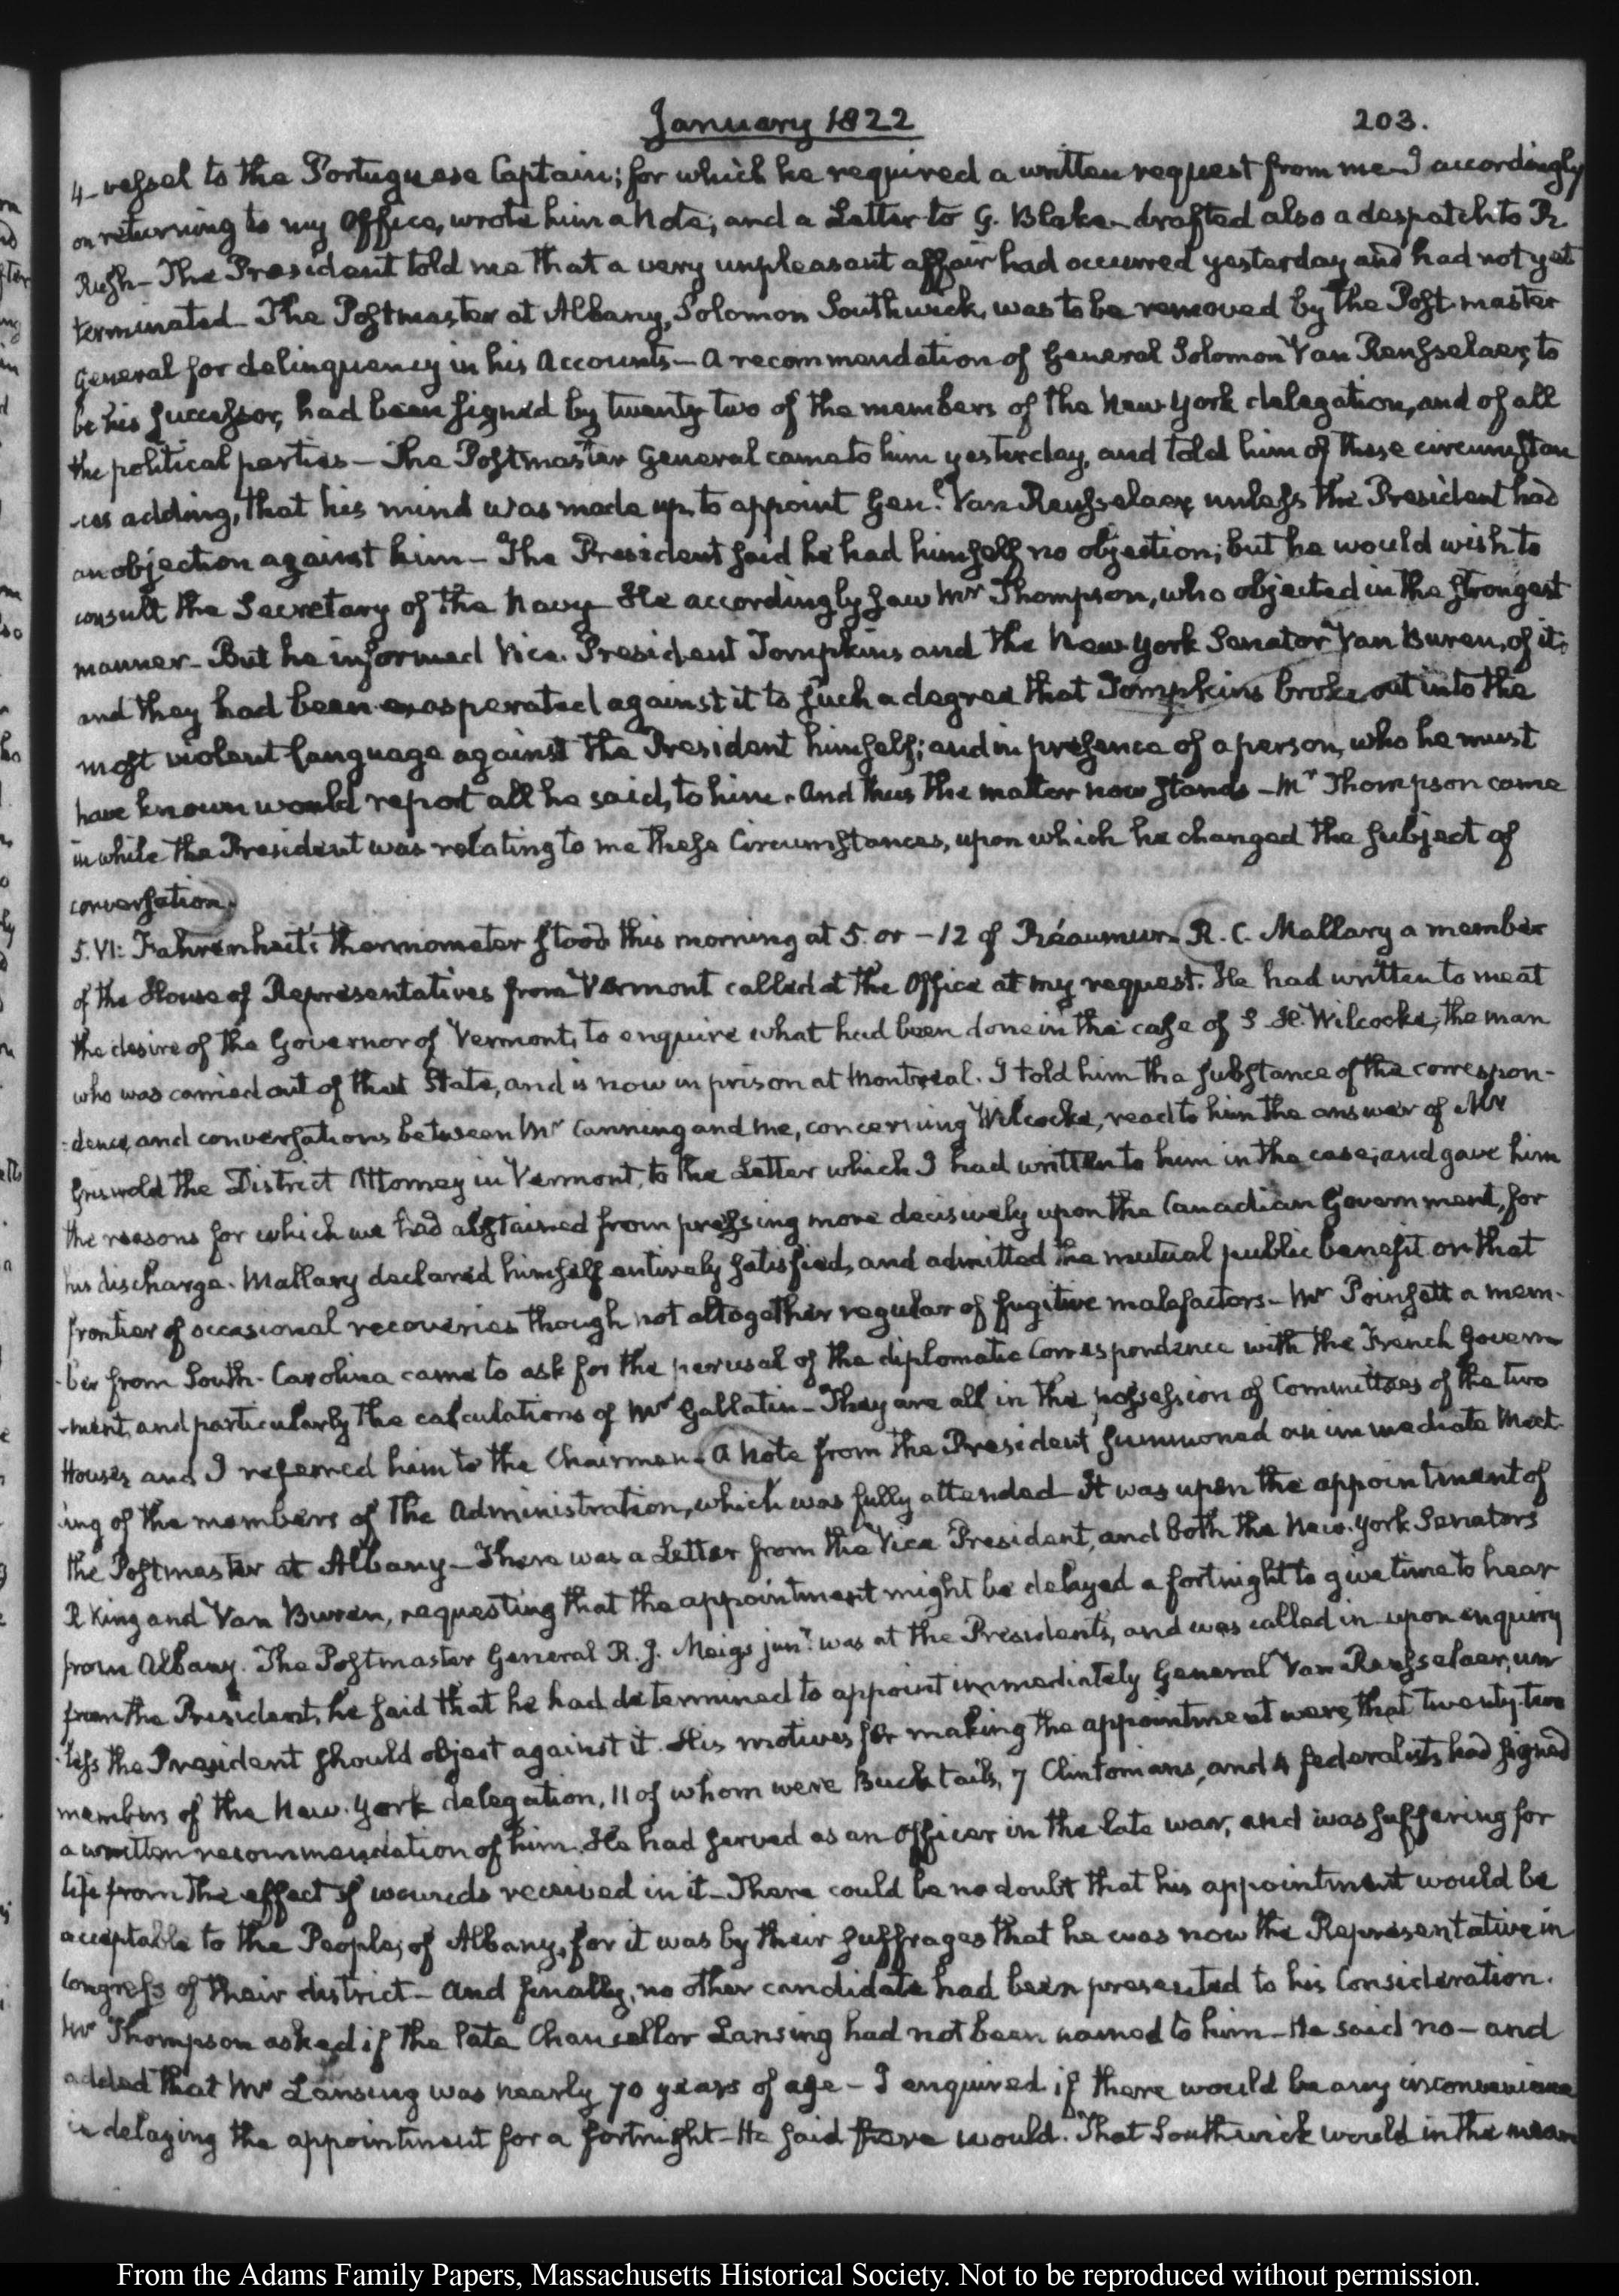 January 1822
203.
4- vessel to the Portuguese Captain; for which he required a written request from me- I accordingly
on returning to my Office, wrote him a Note, and a Letter to G. Blake- drafted also a despatch to R.
Rush- The President told me that a very unpleasant affair had occurred yesterday and had not yet
terminated- The Postmaster at Albany, Solomon Southwick, was to be removed by the Post-master
General for delinquency in his Accounts- A recommendation of General Solomon Van Rensselaer, to
be his successor, had been signed by twenty two of the members of the New-York delegation, and of all
the political parties- The Postmaster General came to him yesterday, and told him of these circumstan
-ces adding, that his mind was made up, to appoint Genl. Van Rensselaer, unless the President had
an objection against him- The President said he had himself no objection; but he would wish to
consult the Secretary of the Navy- He accordingly saw Mr Thompson, who objected in the strongest
manner- But he informed Vice-President Tompkins and the New-York Senator Van Buren, of it;
and they had been exasperated against it to such a degree that Tompkins broke out into the
most violent language against the President himself; and in presence of a person, who he must
have known would report all he said, to him. And thus the matter now stands- Mr Thompson came
in while the President was relating to me these Circumstances, upon which he changed the subject of
conversation.
5. VI: Fahrenheit's thermometer stood this morning at 5. or -12 of Réaumur. R. C. Mallary a member
of the House of Representatives from Vermont called at the Office at my request. He had written to me at
the desire of the Governor of Vermont, to enquire what had been done in the case of S. H. Wilcocke, the man
who was carried out of that State, and is now in prison at Montreal. I told him the substance of the correspon-
-dence, and conversations between Mr Canning and me, concerning Wilcocke, read to him the answer of Mr
Griswold the District Attorney in Vermont, to the Letter which I had written to him in the case; and gave him
the reasons for which we had abstained from pressing more decisively upon the Canadian Government, for
his discharge. Mallary declared himself entirely satisfied, and admitted the mutual public benefit on that
frontier of occasional recoveries though not altogether regular of fugitive malefactors- Mr Poinsett a mem-
-ber from South-Carolina came to ask for the perusal of the diplomatic Correspondence with the French Govern
-ment, and particularly the calculations of Mr Gallatin- They are all in the possession of Committees of the two
Houses, and I referred him to the Chairmen. A Note from the President summoned an immediate Meet-
-ing of the members of the Administration, which was fully attended- It was upon the appointment of
the Postmaster at Albany- There was a Letter from the Vice President, and both the New-York Senators
R King and Van Buren, requesting that the appointment might be delayed a fortnight to give time to hear
from Albany. The Postmaster General R. J. Meigs junr. was at the President's, and was called in- upon enquiry
from the President, he said that he had determined to appoint immediately General Van Rensselaer, un
-less the President should object against it. His motives for making the appointment were, that twenty-two
members of the New-York delegation, 11 of whom were Bucktails, 7 Clintonians, and 4 federalists had signed
a written recommendation of him. He had served as an Officer in the late war, and was suffering for
life from the effect of wounds received in it- There could be no doubt that his appointment would be
acceptable to the People, of Albany, for it was by their suffrages that he was now the Representative in
Congress of their district- And finally, no other candidate had been presented to his Consideration.
Mr Thompson asked if the late Chancellor Lansing had not been named to him- He said no- and
added that Mr Lansing was nearly 70 years of age- I enquired if there would be any inconvenience
in delaying the appointment for a fortnight- He said there would. That Southwick would in the mean
From the Adams Family Papers, Massachusetts Historical Society. Not to be reproduced without permission.